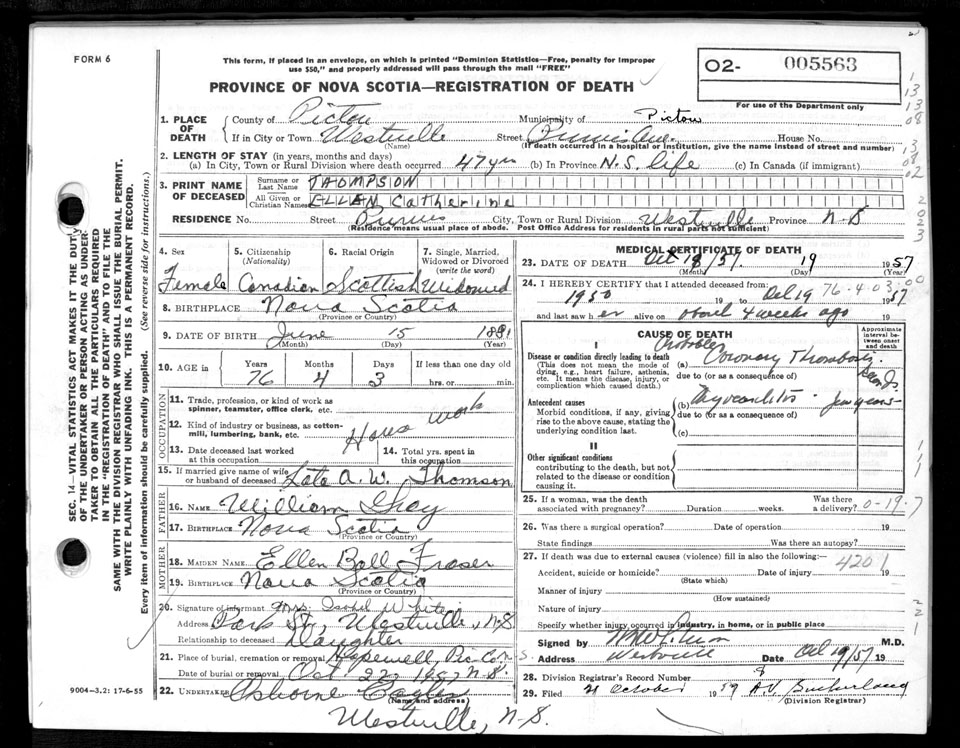 FORM 6
This form, if placed in an envelope, on which is printed "Dominion Statistics—Free, penalty for improper
use $50," and properly addressed will pass through the mail "FREE"
PROVINCE OF NOVA SCOTIA—REGISTRATION OF DEATH
O2- 005563
For use of the Department only
1. PLACE OF DEATH
County of Pictou Municipality of Pictou
If in City or Town Westville Street Ave. House No.
(Name) (If death occurred in a hospital or institution, give the name instead of street and number)
2. LENGTH OF STAY (in years, months and days)
(a) In City, Town or Rural Division where death occurred 47 yrs (b) In Province N.S. life (c) In Canada (if immigrant)
3. PRINT NAME OF DECEASED
Surname or Last Name THOMPSON
All Given or Christian Names ELLAN Catherine
RESIDENCE No. Street City, Town or Rural Division Westville Province N-S
(Residence means usual place of abode. Post Office Address for residents in rural parts not sufficient)
4. Sex 5. Citizenship (Nationality) 6. Racial Origin 7. Single, Married, Widowed or Divorced (write the word)
Female Canadian Scottish Widowed
8. BIRTHPLACE Nova Scotia
(Province or Country)
9. DATE OF BIRTH June 15 1881
(Month) (Day) (Year)
10. AGE IN Years Months Days If less than one day old
76 4 3 hrs. or min.
OCCUPATION
11. Trade, profession, or kind of work as spinner, teamster, office clerk, etc.
12. Kind of industry or business, as cotton-mill, lumbering, bank, etc.
House work
13. Date deceased last worked at this occupation 14. Total yrs. spent in this occupation
15. If married give name of wife or husband of deceased Late A. W. Thomson
FATHER
16. NAME William Gray
17. BIRTHPLACE Nova Scotia
(Province or Country)
MOTHER
18. MAIDEN NAME Ellen Bell Fraser
19. BIRTHPLACE Nova Scotia
(Province or Country)
20. Signature of informant Mrs. Isabel White
Address Park St., Westville, N-S
Relationship to deceased Daughter
21. Place of burial, cremation or removal Hopewell, Pic. Co. N-S.
Date of burial or removal Oct. 22 1957 N-S.
22. UNDERTAKER Osborne Eagles
(Name and address)
Westville, N-S.
9004-3.2: 17-6-55
MEDICAL CERTIFICATE OF DEATH
23. DATE OF DEATH Oct 18/57. 19 1957
(Month) (Day) (Year)
24. I HEREBY CERTIFY that I attended deceased from:
1950 to Oct 19 1957
76-4-03-00
and last saw her alive on about 4 weeks ago 19
CAUSE OF DEATH
Approximate interval between onset and death
I
Disease or condition directly leading to death
(This does not mean the mode of dying, e.g., heart failure, asthenia, etc. It means the disease, injury, or complication which caused death.)
(a) Probable Coronary Thrombosis
due to (or as a consequence of)
Antecedent causes
Morbid conditions, if any, giving rise to the above cause, stating the underlying condition last.
(b) Myocarditis few years
due to (or as a consequence of)
(c)
II
Other significant conditions
contributing to the death, but not related to the disease or condition causing it.
25. If a woman, was the death associated with pregnancy? Duration weeks. Was there a delivery? 0-19-7
26. Was there a surgical operation? Date of operation 19
State findings Was there an autopsy?
27. If death was due to external causes (violence) fill in also the following:—
Accident, suicide or homicide? Date of injury 19
(State which)
4201
Manner of injury
(How sustained)
Nature of injury
Specify whether injury occurred in industry, in home, or in public place
Signed by M.D.
Address Westville Date Oct 19/57 19
28. Division Registrar's Record Number 8
29. Filed 21 October 1957 A.V. Sutherland
(Division Registrar)
SEC. 14—VITAL STATISTICS ACT MAKES IT THE DUTY
OF THE UNDERTAKER OR PERSON ACTING AS UNDER-
TAKER TO OBTAIN ALL THE PARTICULARS REQUIRED
IN THE "REGISTRATION OF DEATH" AND TO FILE THE
SAME WITH THE DIVISION REGISTRAR WHO SHALL ISSUE THE BURIAL PERMIT.
WRITE PLAINLY WITH UNFADING INK. THIS IS A PERMANENT RECORD.
Every item of information should be carefully supplied. (See reverse side for instructions.)